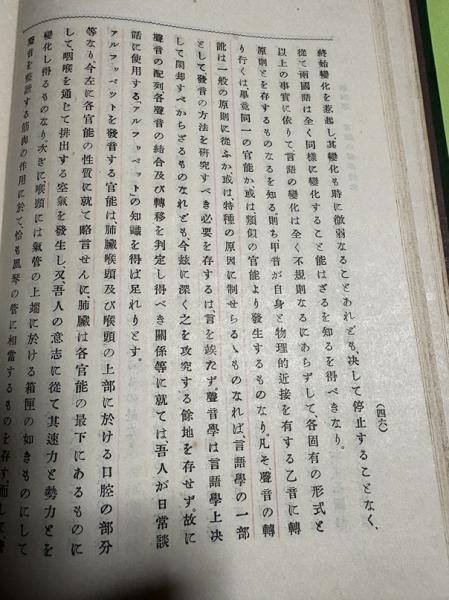 (四六)
終始變化を惹起し其變化も時に微弱なることあれども、決して停止することなく、
從て兩國語は全く同樣に變化すること能はざるを知るを得べきなり。
以上の事實に依りて言語の變化は全く不規則なるにあらずして、各固有の形式と
原則とを存するものなるを知る。則ち甲音が自身と物理的近接を有する乙音に轉
り行くは畢竟同一の官能か或は類似の官能より發生するものなり。凡そ聲音の轉
訛は一般の原則に從ふか或は特種の原因に制せらるゝものなれば、言語學の一部
として發音の方法を研究すべき必要を存するは、言を竢たず。聲音學は言語學上決
して閑却すべからざるものなれども、今玆に深く之を攻究する餘地を存せず。故に
聲音の配列各聲音の結合及び轉移を判定し得べき關係等に就ては、吾人が日常談
話に使用する「アルファベット」の知識を得ば足れりとす。
アルファベットを發音する官能は、肺臟喉頭及び喉頭の上部に於ける口腔の部分
等なり。今左に各官能の性質に就て略言せんに肺臟は各官能の最下にあるものに
して、咽喉を通じて排出する空氣を發生し、又吾人の意志に從て其速力と勢力とを
變化し得るものなり。次ぎに喉頭には氣管の上端に於ける箱匣の如きものにして
聲音を整調する筋肉の作用に於て、恰も風琴の管に相當するものを存す。而して